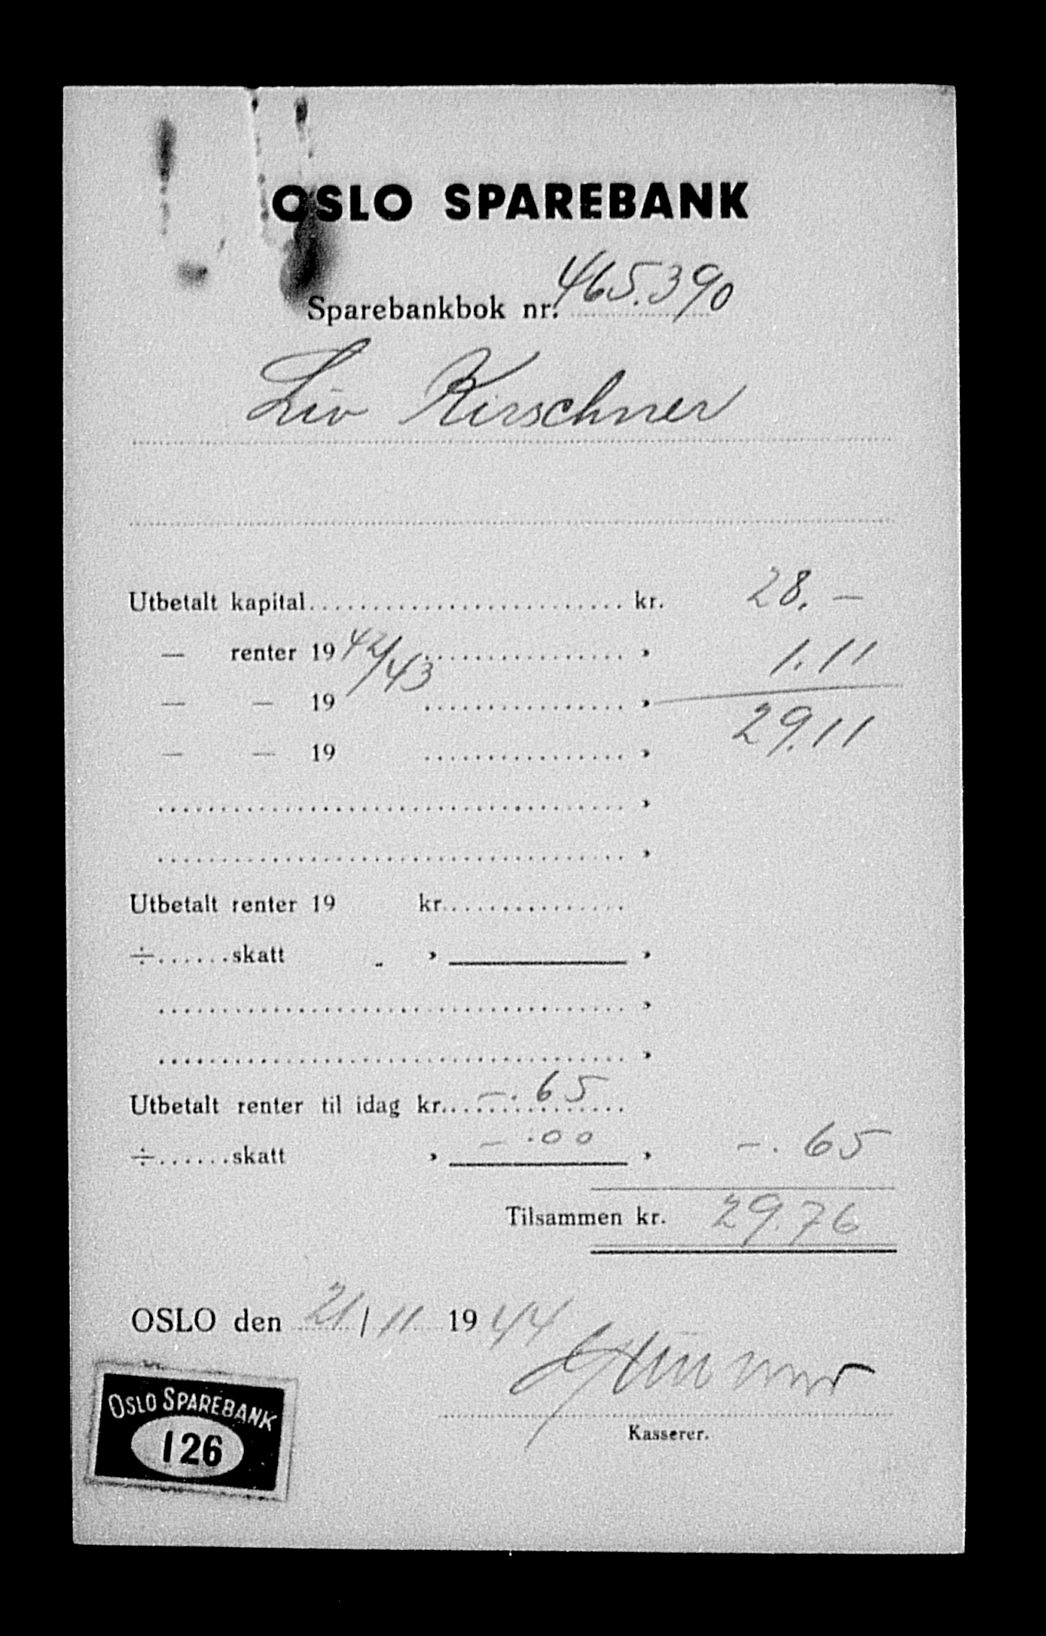 OSLO SPAREBANK
Sparebankbok nr. 465.390
Liv Kirschner
Utbetalt kapital.......................... kr. 28.—
— renter 19 42/43 ................ » 1.11
— — 19 ................ » 29.11
— — 19 ................ »
..................................... »
..................................... »
Utbetalt renter 19 kr...............
÷......skatt » »
..................................... »
..................................... »
Utbetalt renter til idag kr. —.65
÷......skatt » —.00 » —.65
Tilsammen kr. 29.76
OSLO den 21/11 1944
Kasserer.
OSLO SPAREBANK
126